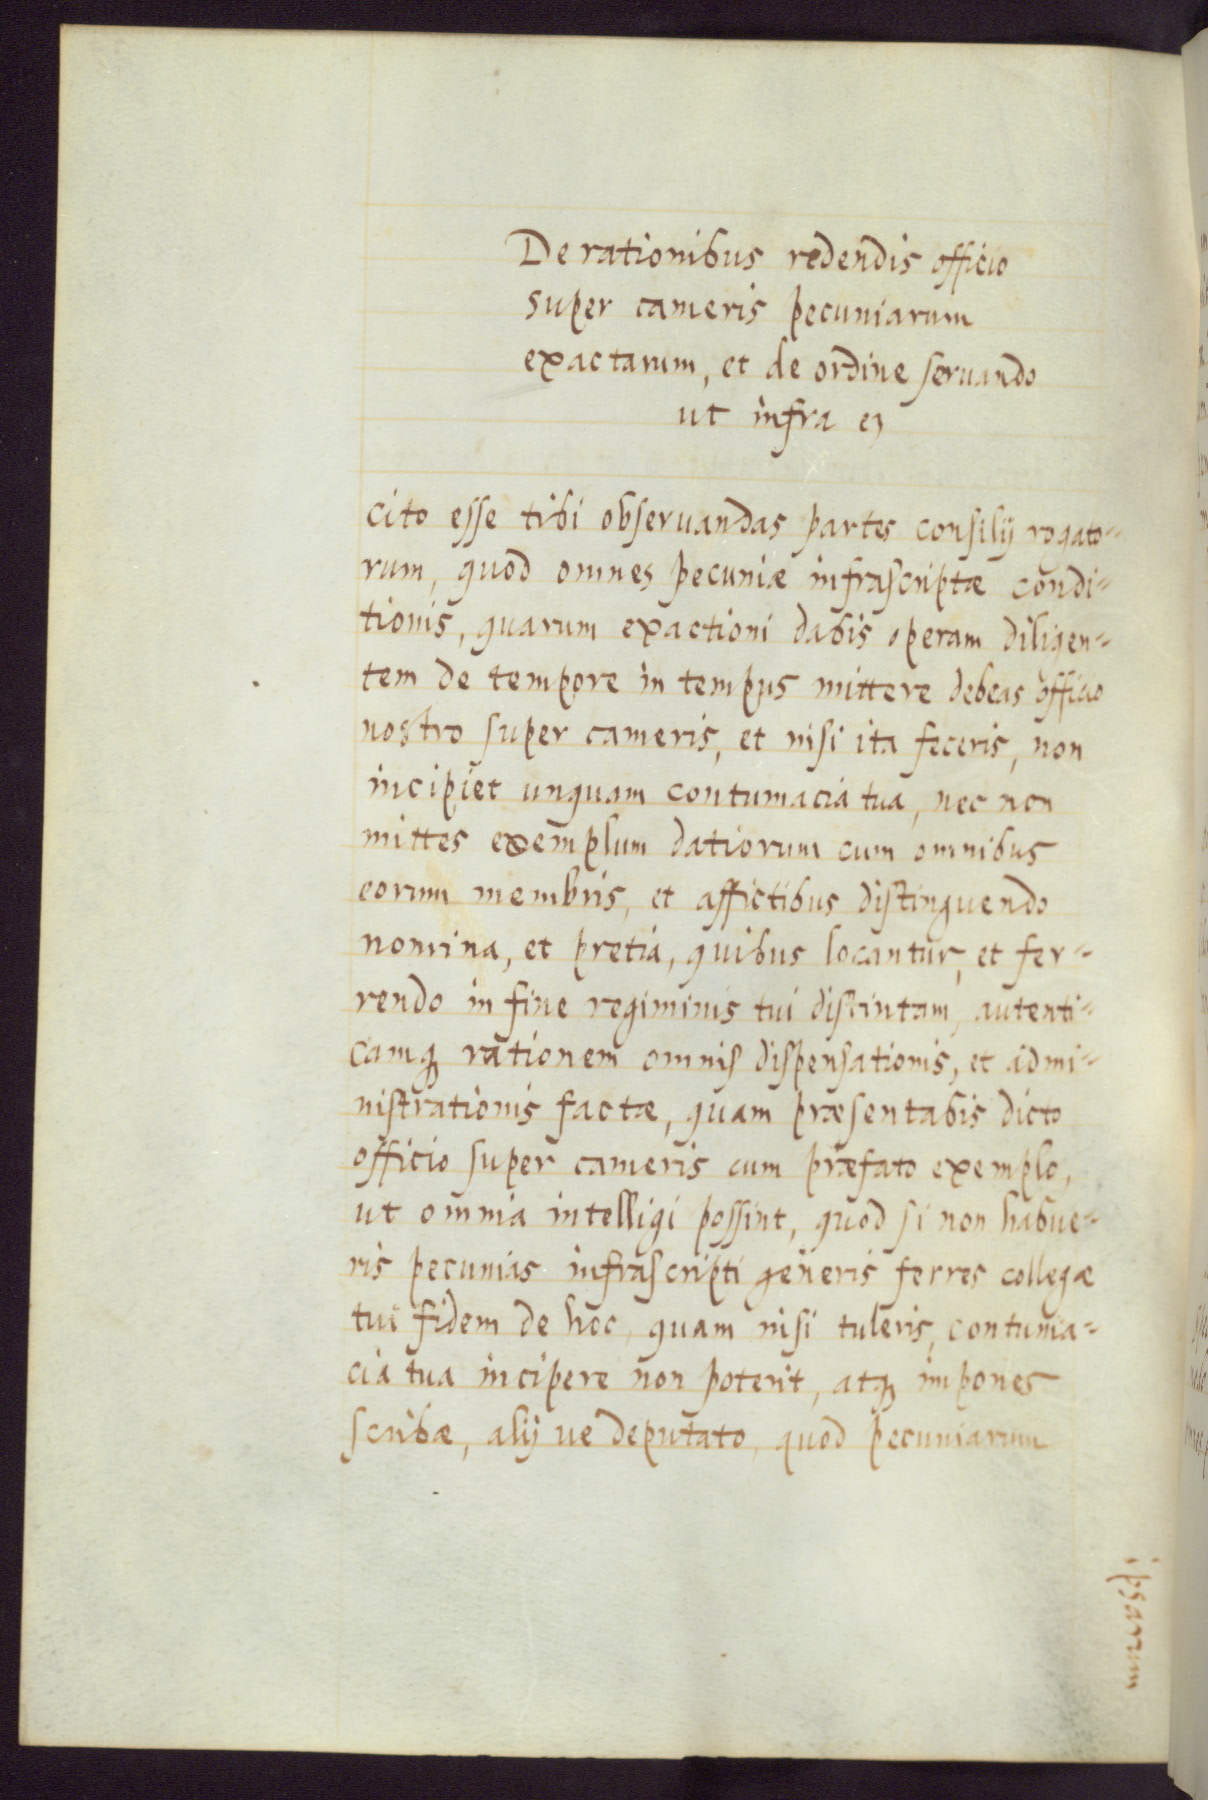 De rationibus redendis officio
super cameris pecuniarum
exactarum, et de ordine servando
ut infra
cito esse tibi observandas partes consilÿ rogato-
rum, quod omnes pecuniæ infrascriptæ condi-
tionis, quarum exactioni dabis operam diligen-
tem de tempore in tempus mittere debeas officio
nostro super cameris, et nisi ita feceris, non
incipiet unquam contumacia tua, nec non
mittes exemplum datiorum cum omnibus
eorum membris, et affictibus distinguendo
nomina, et pretia, quibus locantur, et fer-
rendo in fine regiminis tui distintam, autenti-
camqꝫ rationem omnis dispensationis, et admi-
nistrationis factæ, quam præsentabis dicto
officio super cameris cum præfato exemplo,
ut omnia intelligi possint, quod si non habue-
ris pecunias infrascripti generis ferres collegæ
tui fidem de hoc, quam nisi tuleris, contuma-
cia tua incipere non poterit, atqꝫ impones
scribæ, alÿ ve deputato, quod pecuniarum
ipsarum